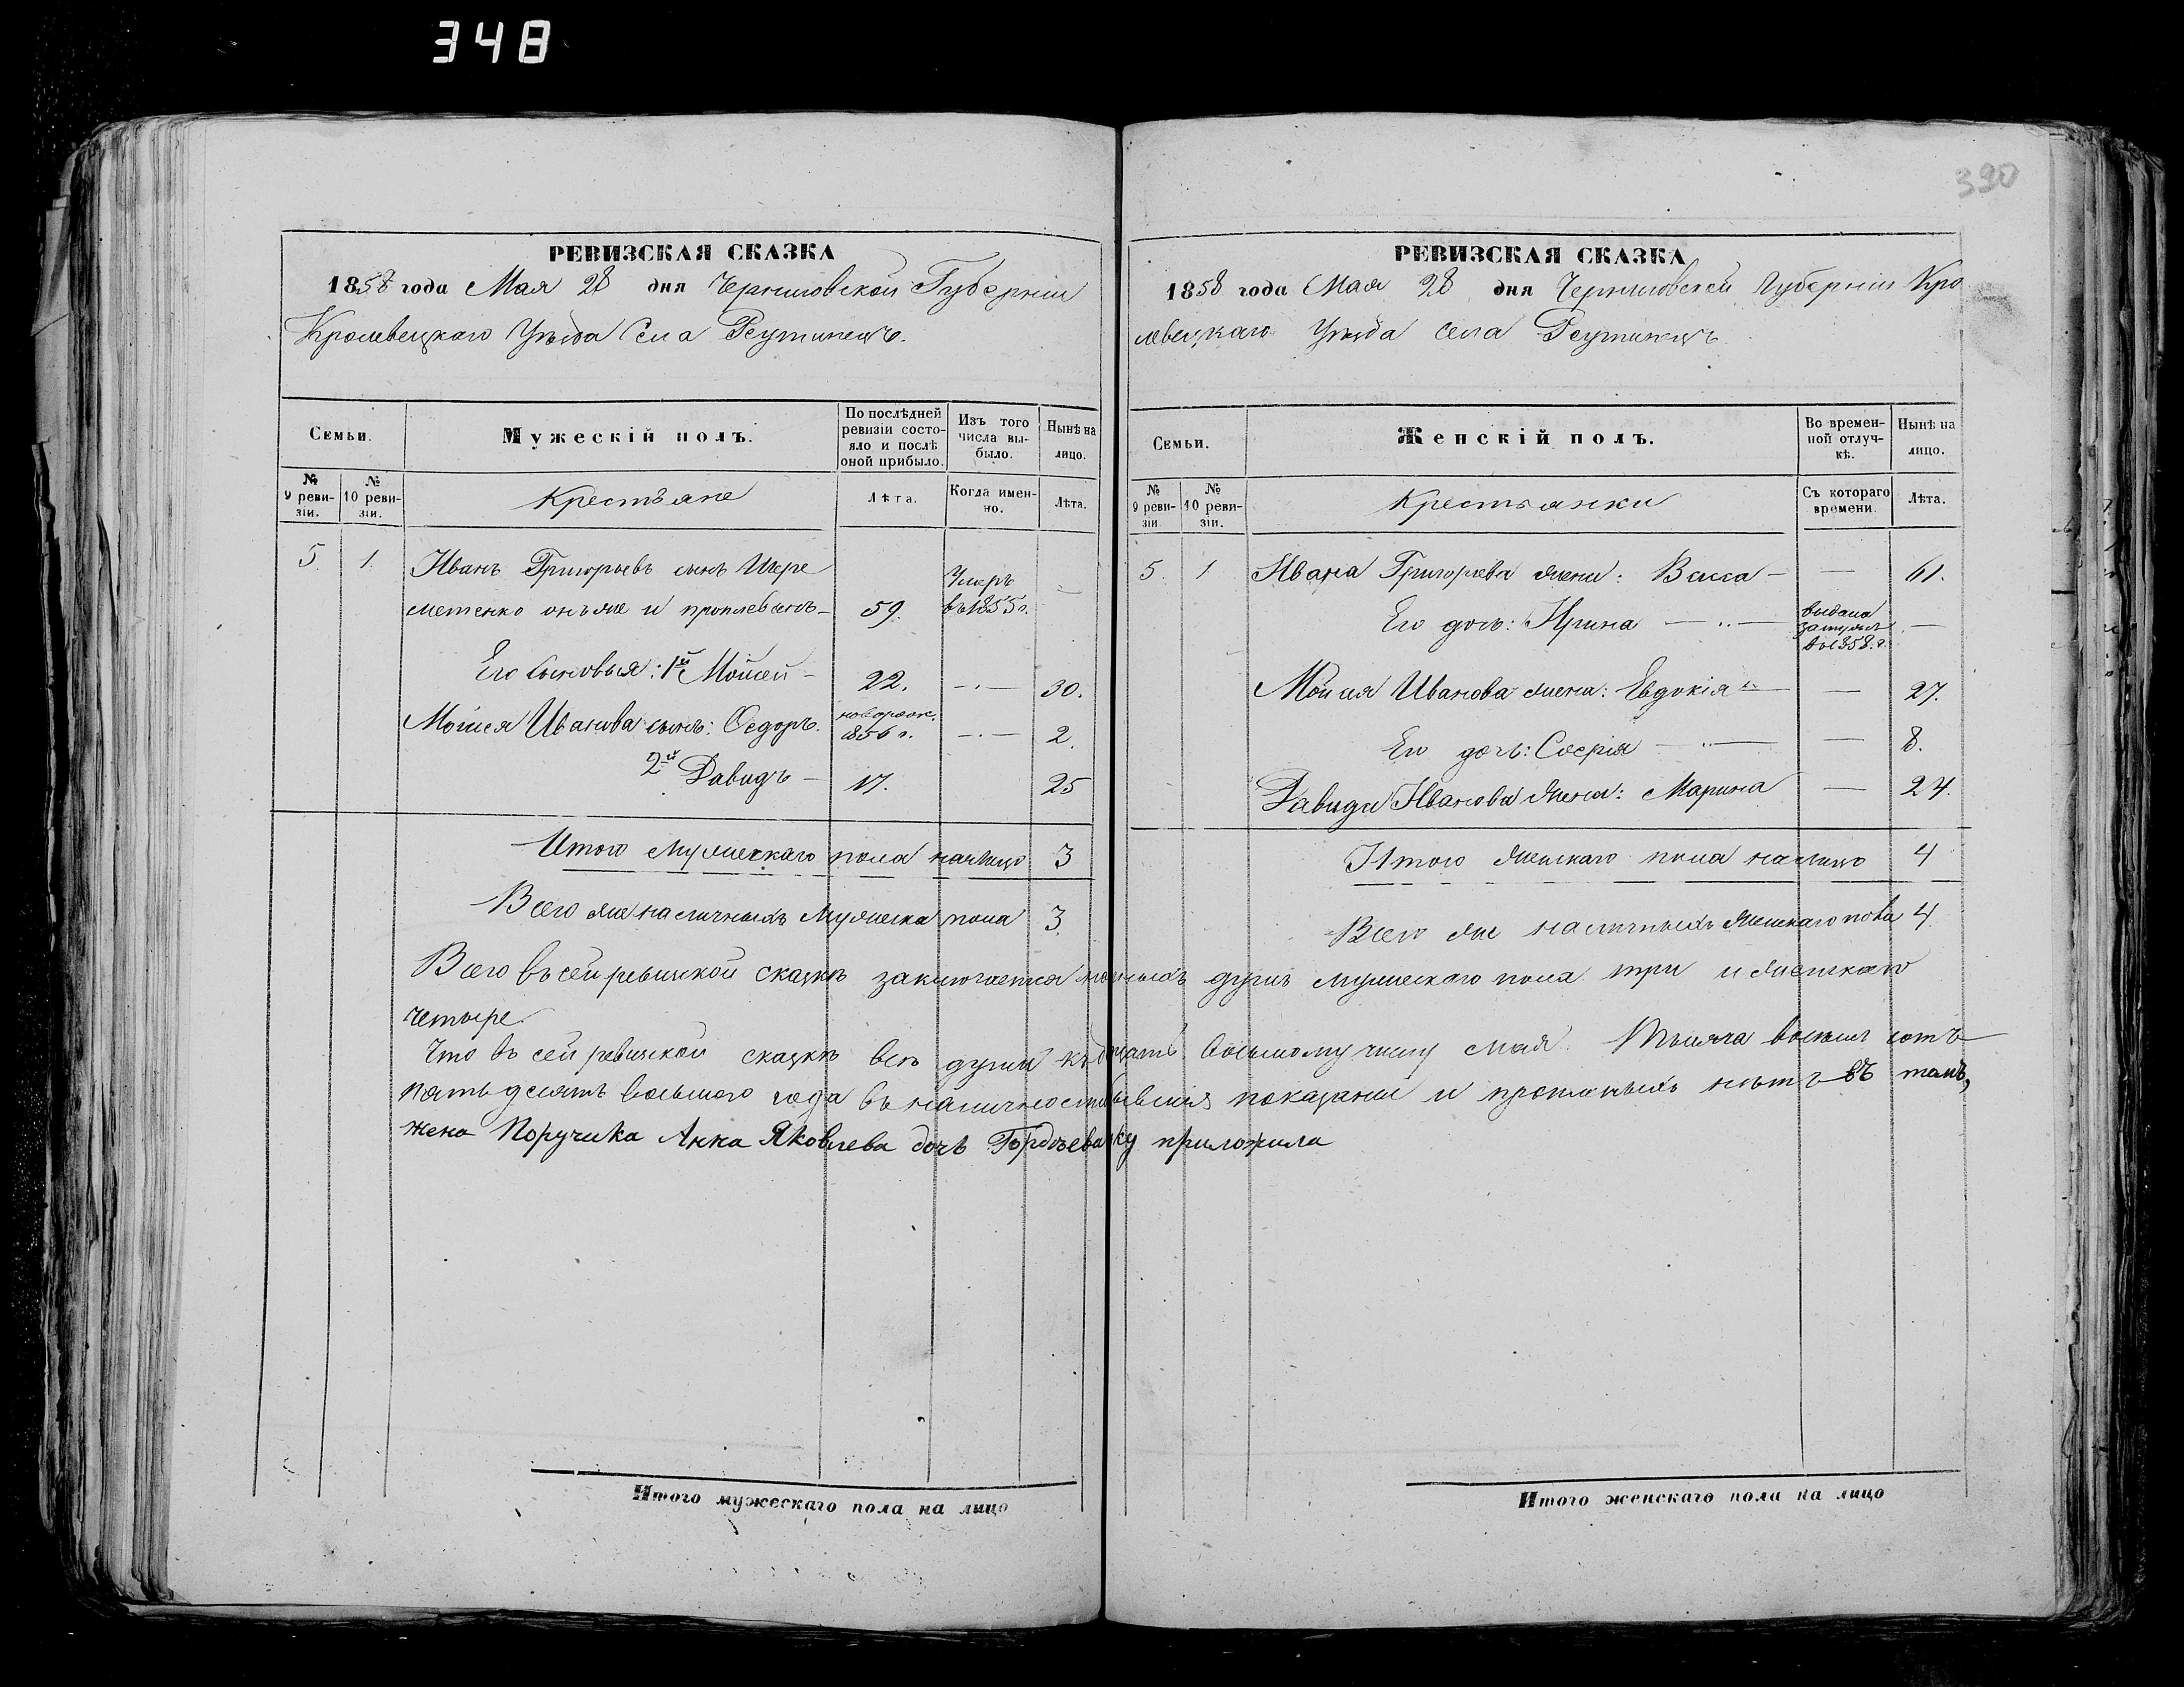 348
390
РЕВИЗСКАЯ СКАЗКА
1858 года Мая 28 дня Черниговской Губерніи
Кролевецкаго Уѣзда Села Реутинецъ.
Семьи.
Мужескій полъ.
По послѣдней ревизіи состояло и послѣ оной прибыло.
Изъ того числа выбыло.
Нынѣ на лицо.
№ 9 ревизіи.
№ 10 ревизіи.
Крестьяне
Лѣта.
Когда именно.
Лѣта.
5. 1. Иванъ Григорьевъ сынъ Шере
метенко онъ же и 59. Умеръ въ 1855 г. —
Его сыновья: 1й Мойсей – 22. —·— 30.
Мойсея Иванова сынъ: Ѳедоръ. новорож. 1856 г. —·— 2.
2й Давидъ – 17. 25
Итого мужескаго пола налицо 3
Всего же наличныхъ мужеска пола 3.
РЕВИЗСКАЯ СКАЗКА
1858 года Мая 28 дня Черниговской Губерніи Кро
левецкаго Уѣзда села Реутинецъ.
Семьи.
Женскій полъ.
Во временной отлучкѣ.
Нынѣ на лицо.
№ 9 ревизіи.
№ 10 ревизіи.
Крестьянки
Съ котораго времени.
Лѣта.
5. 1 Ивана Григорьева жена: Васса – — 61.
Его дочь: Ирина выдана замужъ въ 1858. г. —
Мойсея Иванова жена: Евдокія — 27.
Его дочь: Софія — 8.
Давида Иванова жена: Марина — 24.
Итого женскаго пола налицо 4
Всего же наличныхъ женскаго пола 4
Всего въ сей ревизской сказкѣ заключается наличныхъ душъ мужескаго пола три и женскаго
четыре.
Что въ сей ревизской сказкѣ всѣ души къ двадцать восьмому числу мая тысяча восемь сотъ
пятьдесятъ восьмого года въ наличности бывшія показаны и прописныхъ нѣтъ въ томъ,
жена Поручика Анна Яковлева дочь руку приложила
Итого мужескаго пола на лицо
Итого женскаго пола на лицо